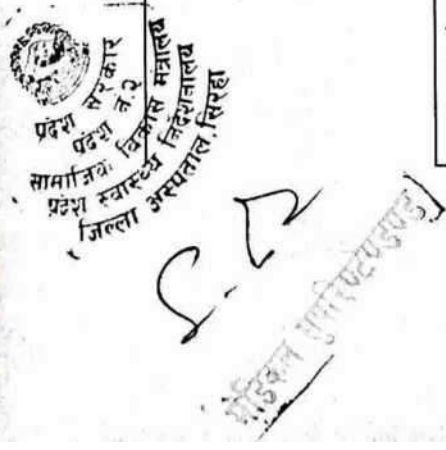 प्रदेश सरकार
प्रदेश नं.२
सामाजिक विकास मंत्रालय
प्रदेश स्वास्थ्य निर्देशनालय
जिल्ला अस्पताल, सिरहा
मेडिकल सुपरिण्टेण्डेण्ट